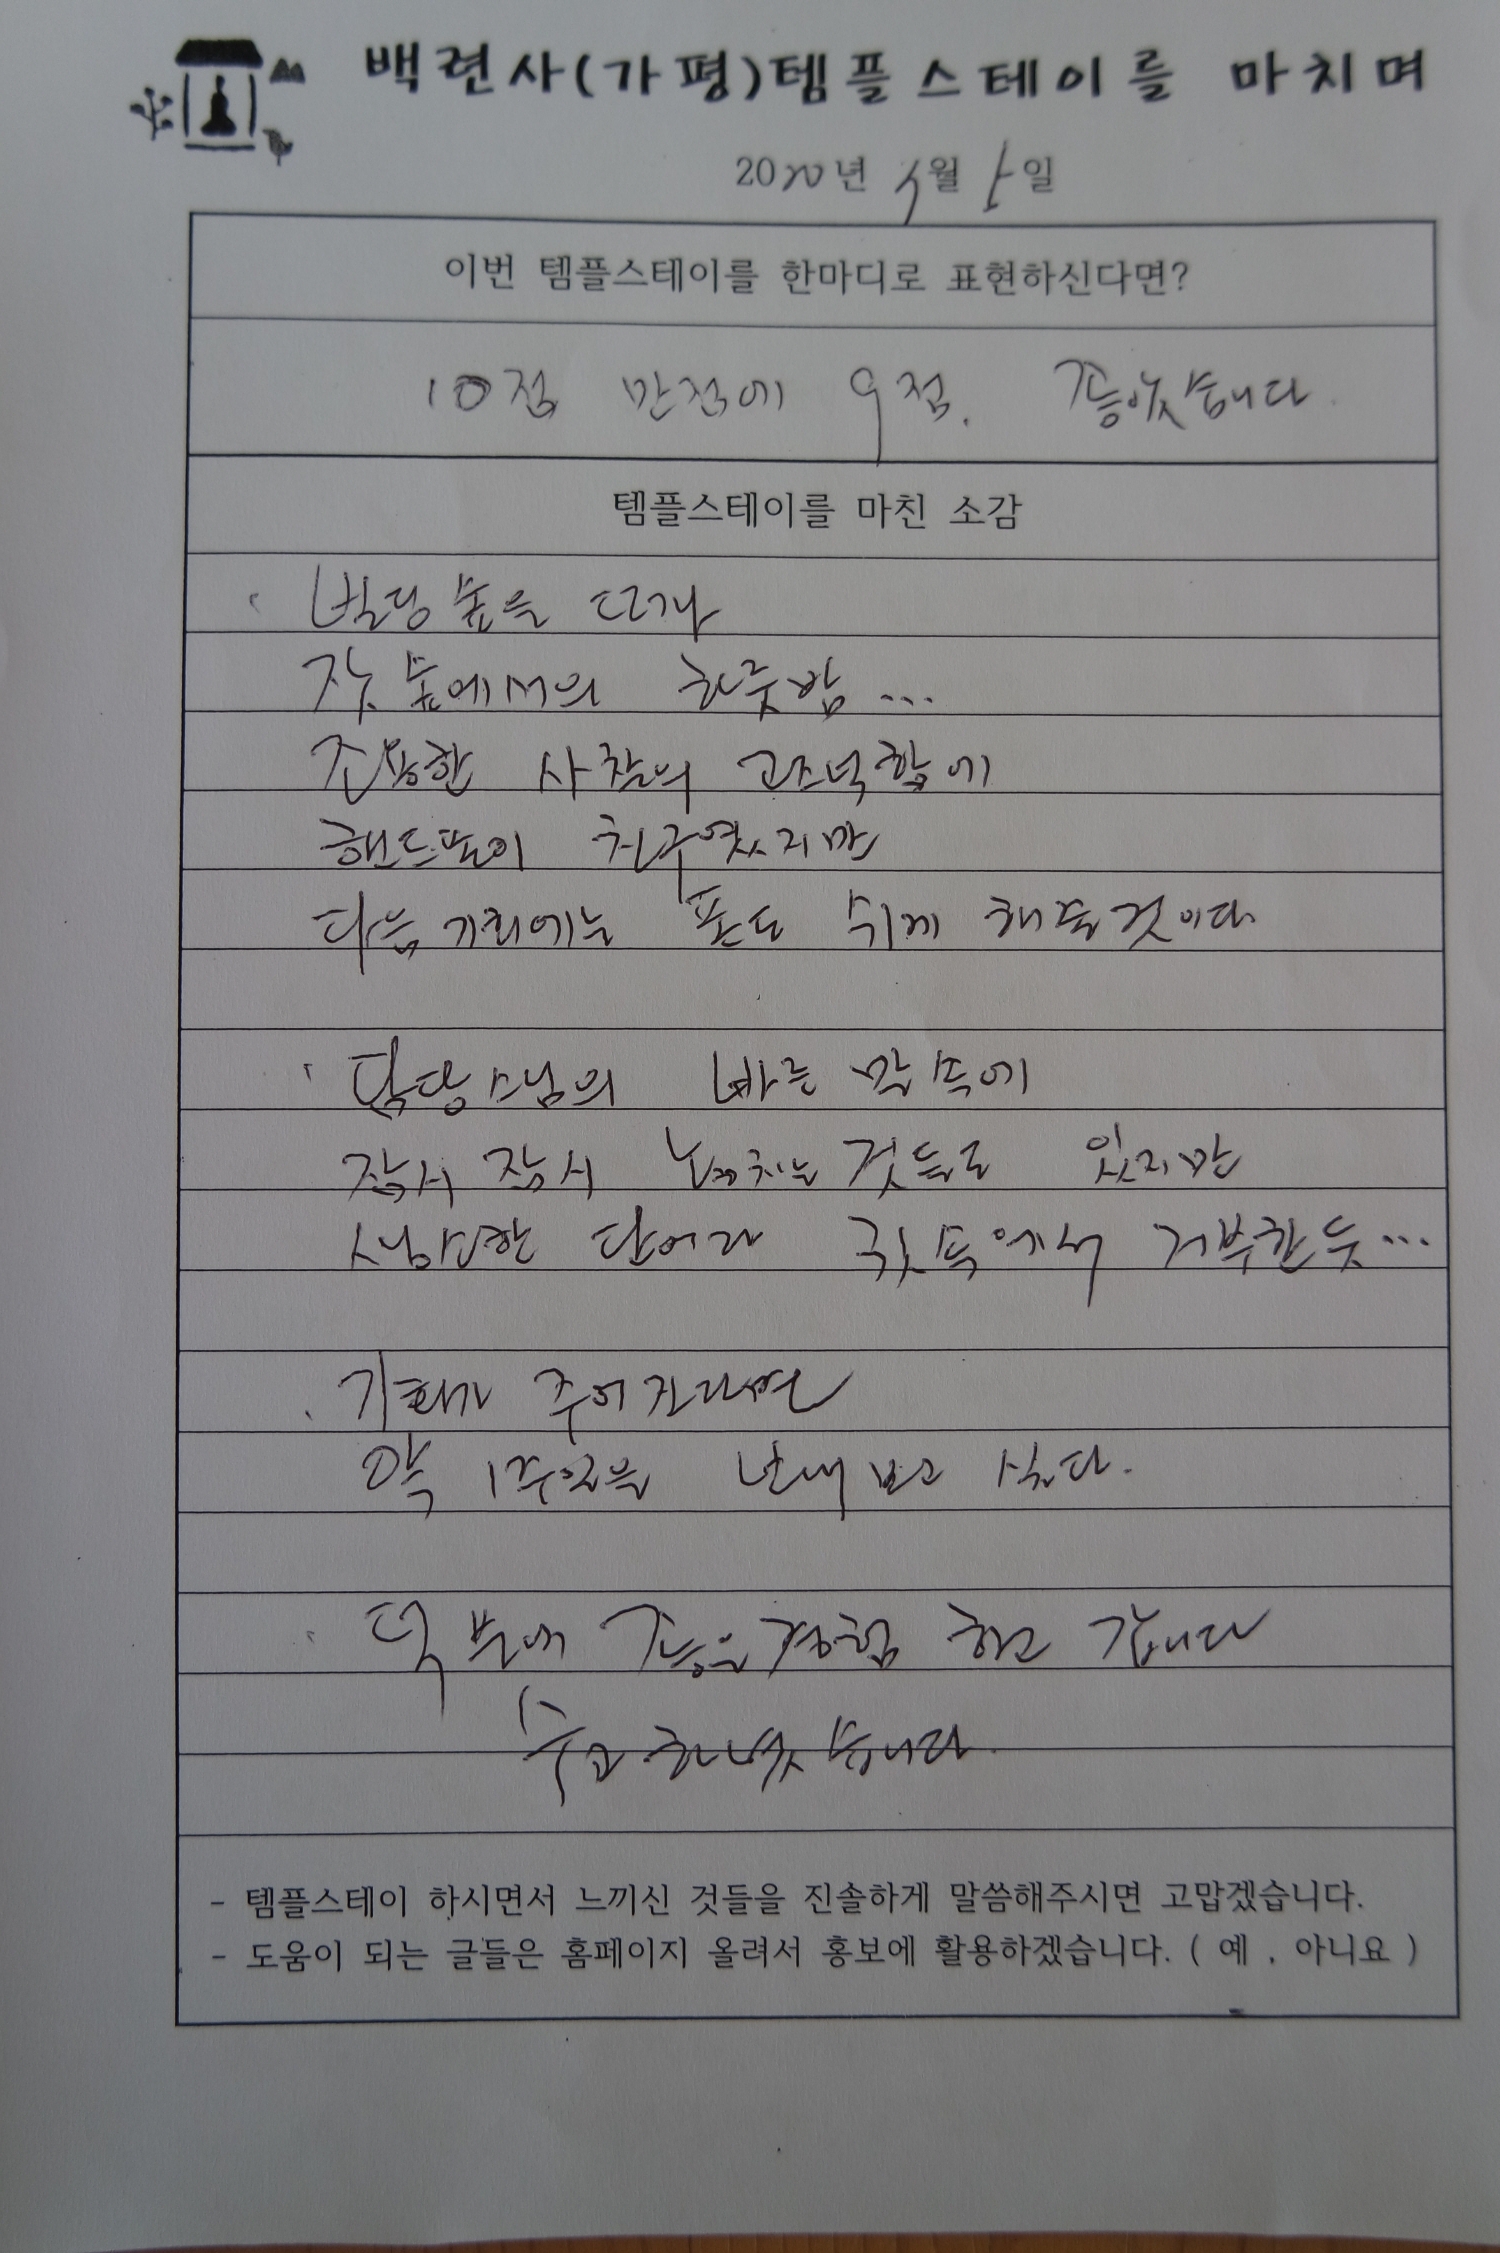 백련사(가평)템플스테이를 마치며
2020년 월 일
이번 템플스테이를 한마디로 표현하신다면?
10점 만점에 9점. 좋았습니다.
템플스테이를 마친 소감
빌딩숲을 떠나
잣숲에서의 하룻밤...
조용한 사찰의 고즈넉함에
핸드폰이 친구였지만
다음 기회에는 폰도 쉬게 해줄것이다
담당스님의 빠른 말 속에
잠시 잠시 놓치는 것들도 있지만
생소한 단어라 귓속에서 거부한 듯...
기회가 주어진다면
약 1주일을 보내 보고 싶다.
덕분에 좋은 경험 하고 갑니다
수고하셨습니다.
- 템플스테이 하시면서 느끼신 것들을 진솔하게 말씀해주시면 고맙겠습니다.
- 도움이 되는 글들은 홈페이지 올려서 홍보에 활용하겠습니다. ( 예 , 아니요 )